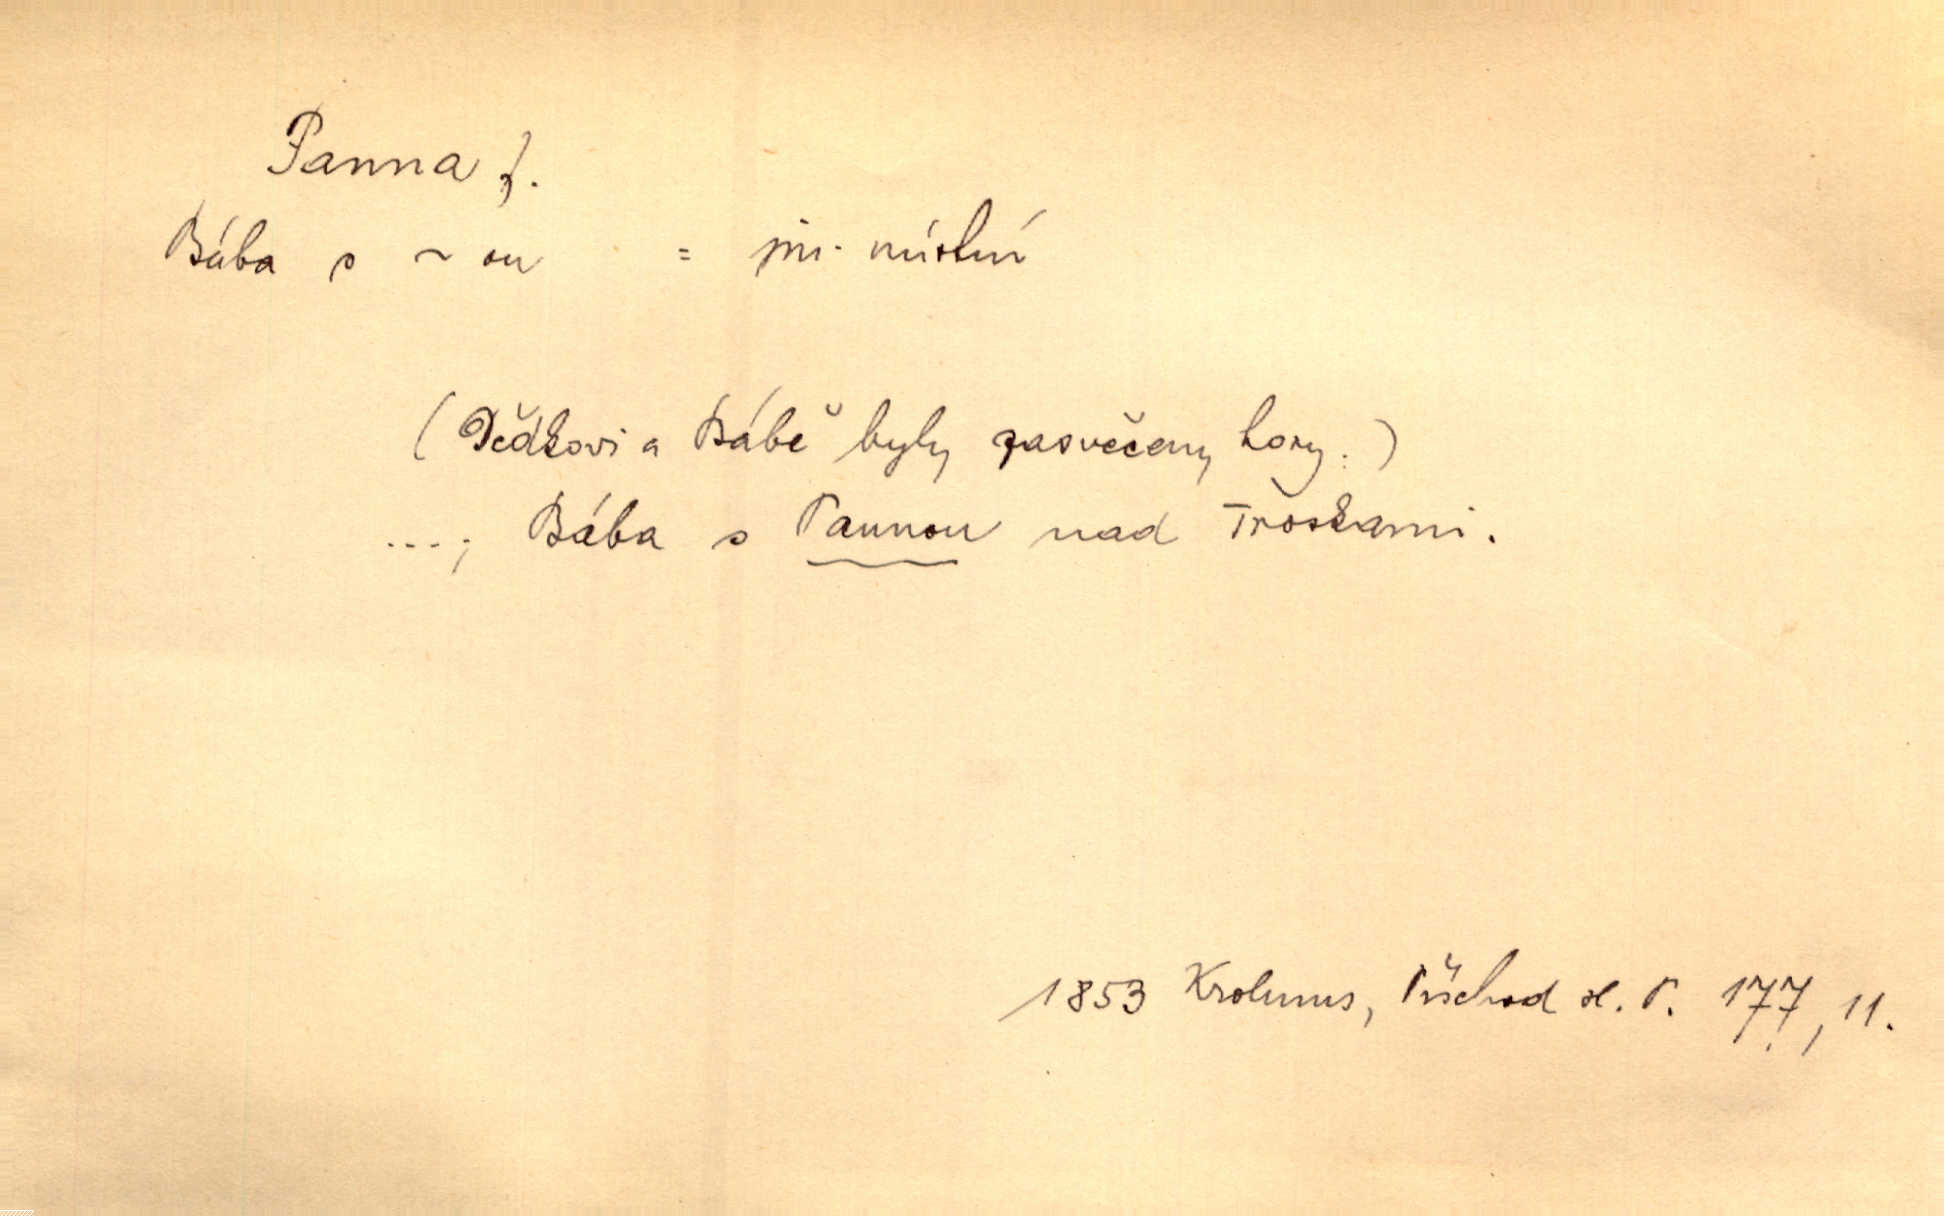 Panna f.
Bába s ~ ou = jm. místní
(Dědkovi a Bábě byly zasvěceny hory:)
...; Bába s Pannou nad Troskami.
1853 Krolmus, Příchod sl. P. 177, 11.